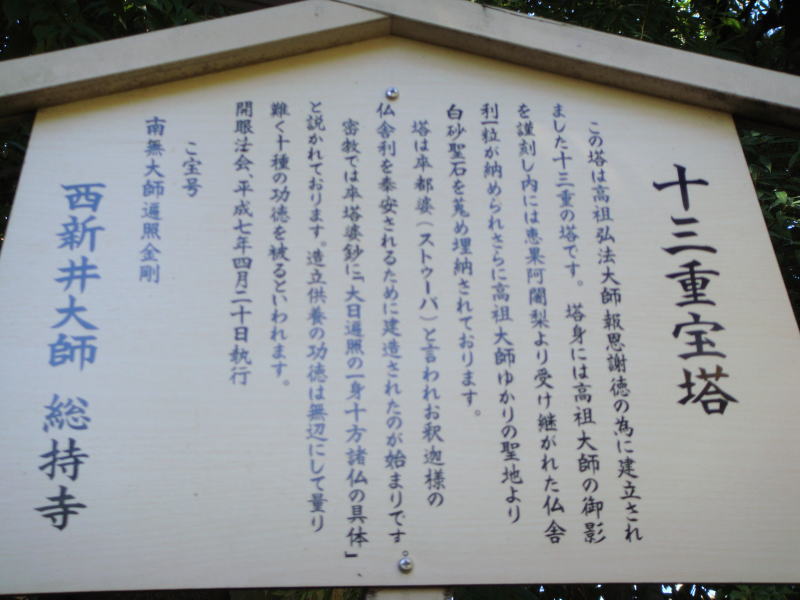 十三重宝塔
この塔は高祖弘法大師報恩謝徳の為に建立され
ました十三重の塔です。塔身には高祖大師の御影
を謹刻し内には恵果阿闍梨より受け継がれた仏舎
利一粒が納められさらに高祖大師ゆかりの聖地より
白砂聖石を蒐め埋納されております。
塔は卒都婆(ストゥーパ)と言われお釈迦様の
仏舎利を奉安されるために建造されたのが始まりです。
密教では卒塔婆鈔に「大日遍照の一身十方諸仏の具体」
と説かれております。造立供養の功徳は無辺にして量り
難く十種の功徳を被るといわれます。
開眼法会、平成七年四月二十日執行
ご宝号
南無大師遍照金剛
西新井大師 総持寺